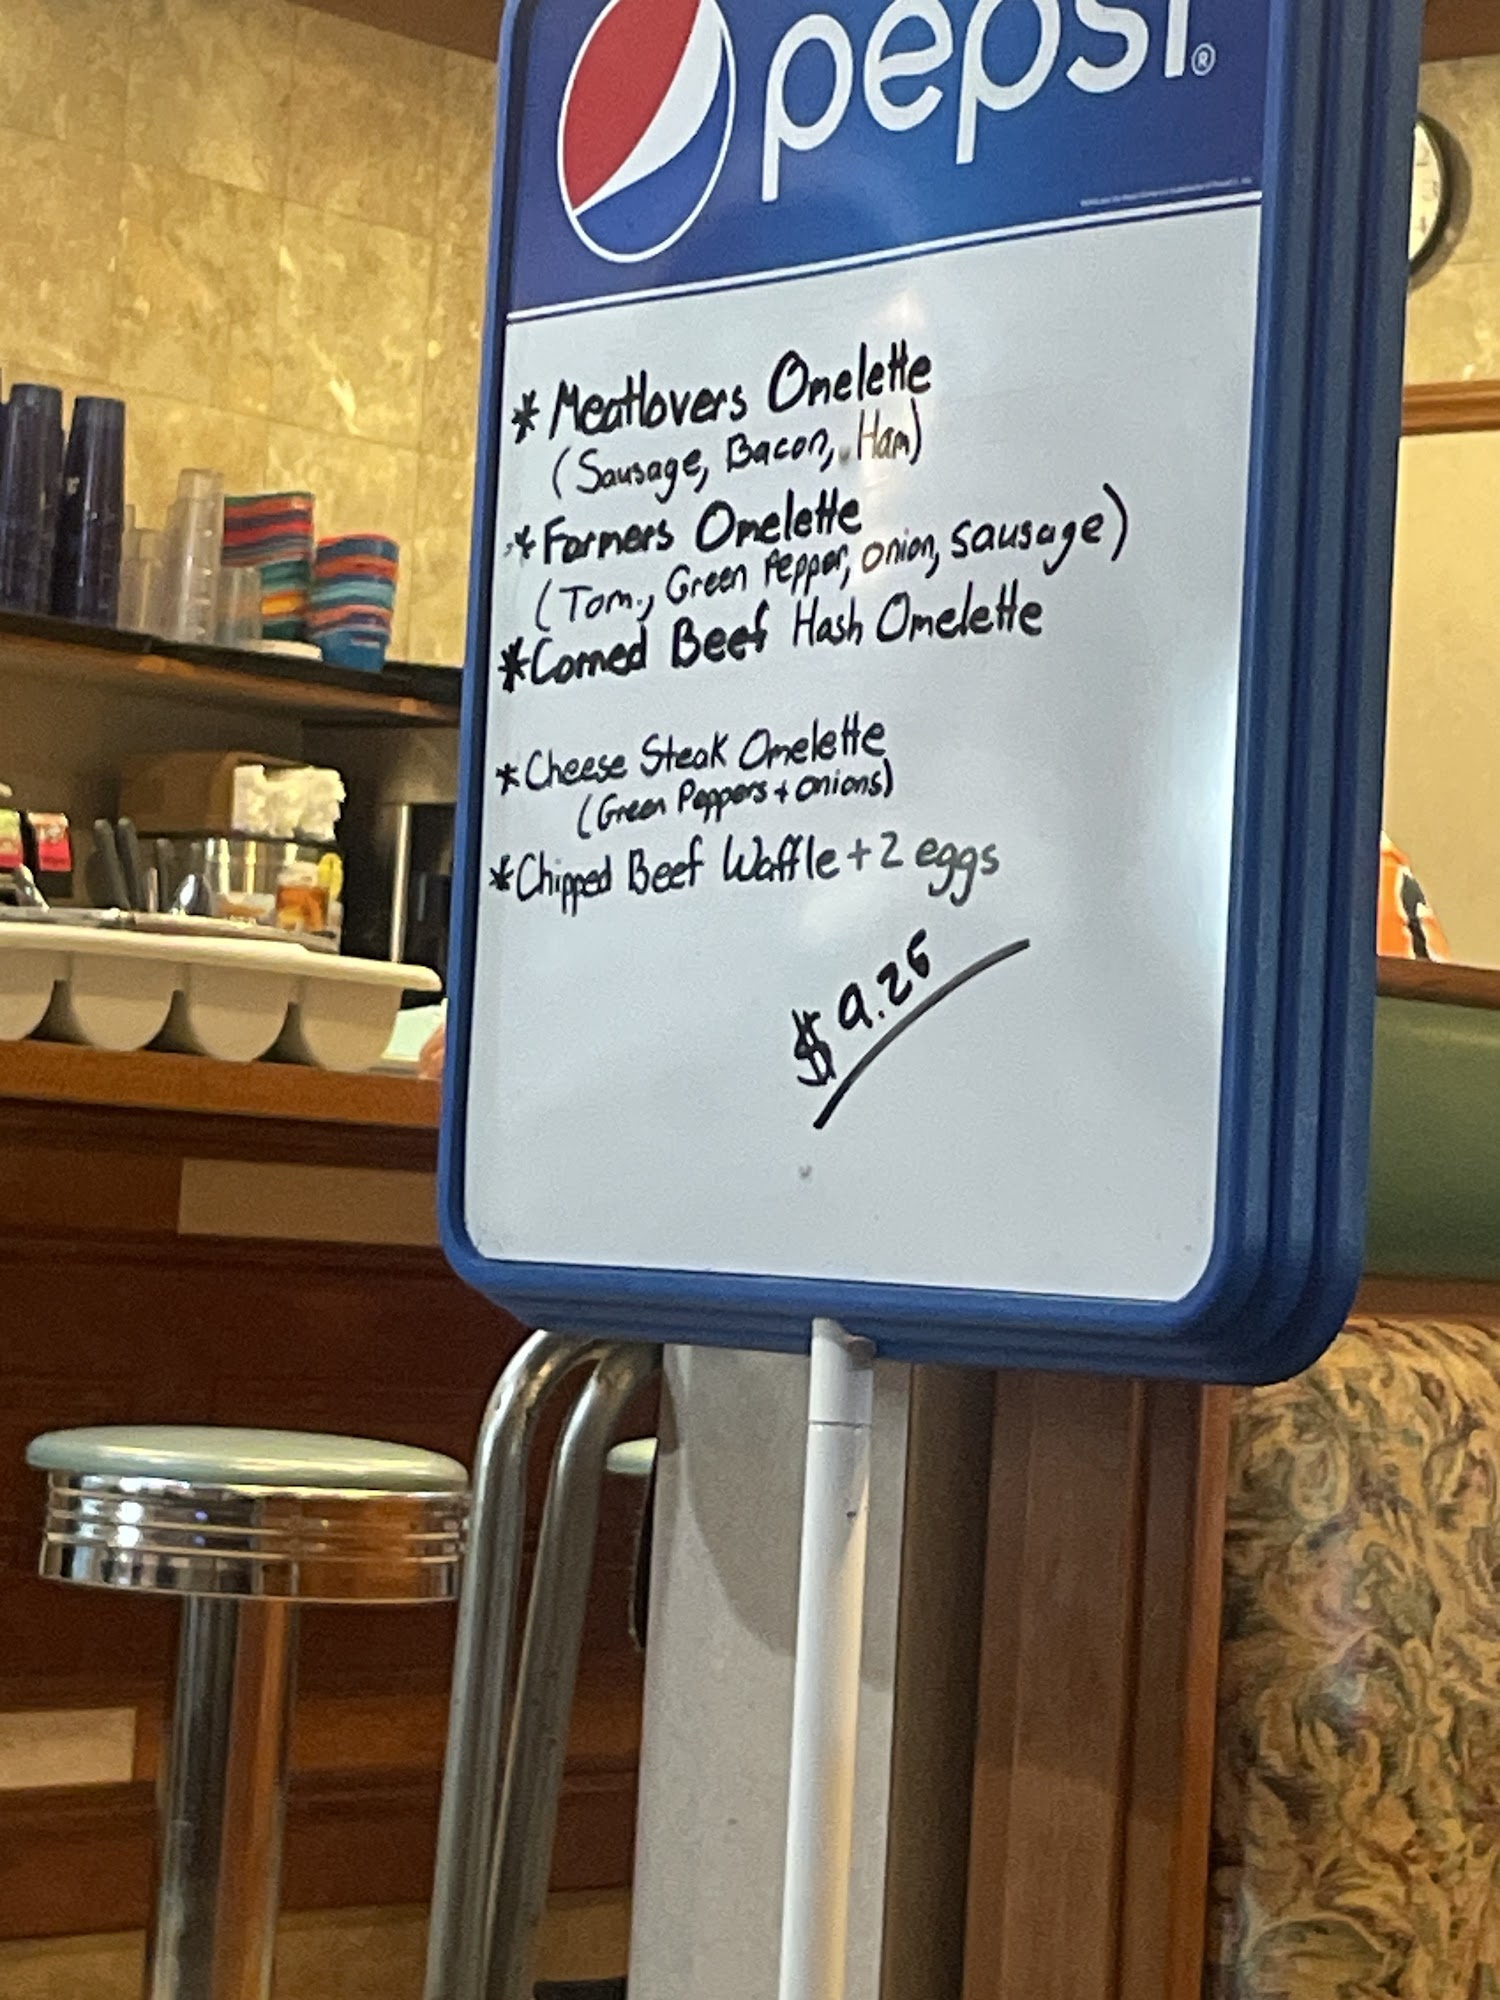 pepsi®
* Meatlovers Omelette
(Sausage, Bacon, Ham)
* Farmers Omelette
(Tom., Green Pepper, onion, sausage)
* Corned Beef Hash Omelette
* Cheese Steak Omelette
(Green Peppers + onions)
* Chipped Beef Waffle + 2 eggs
$9.25